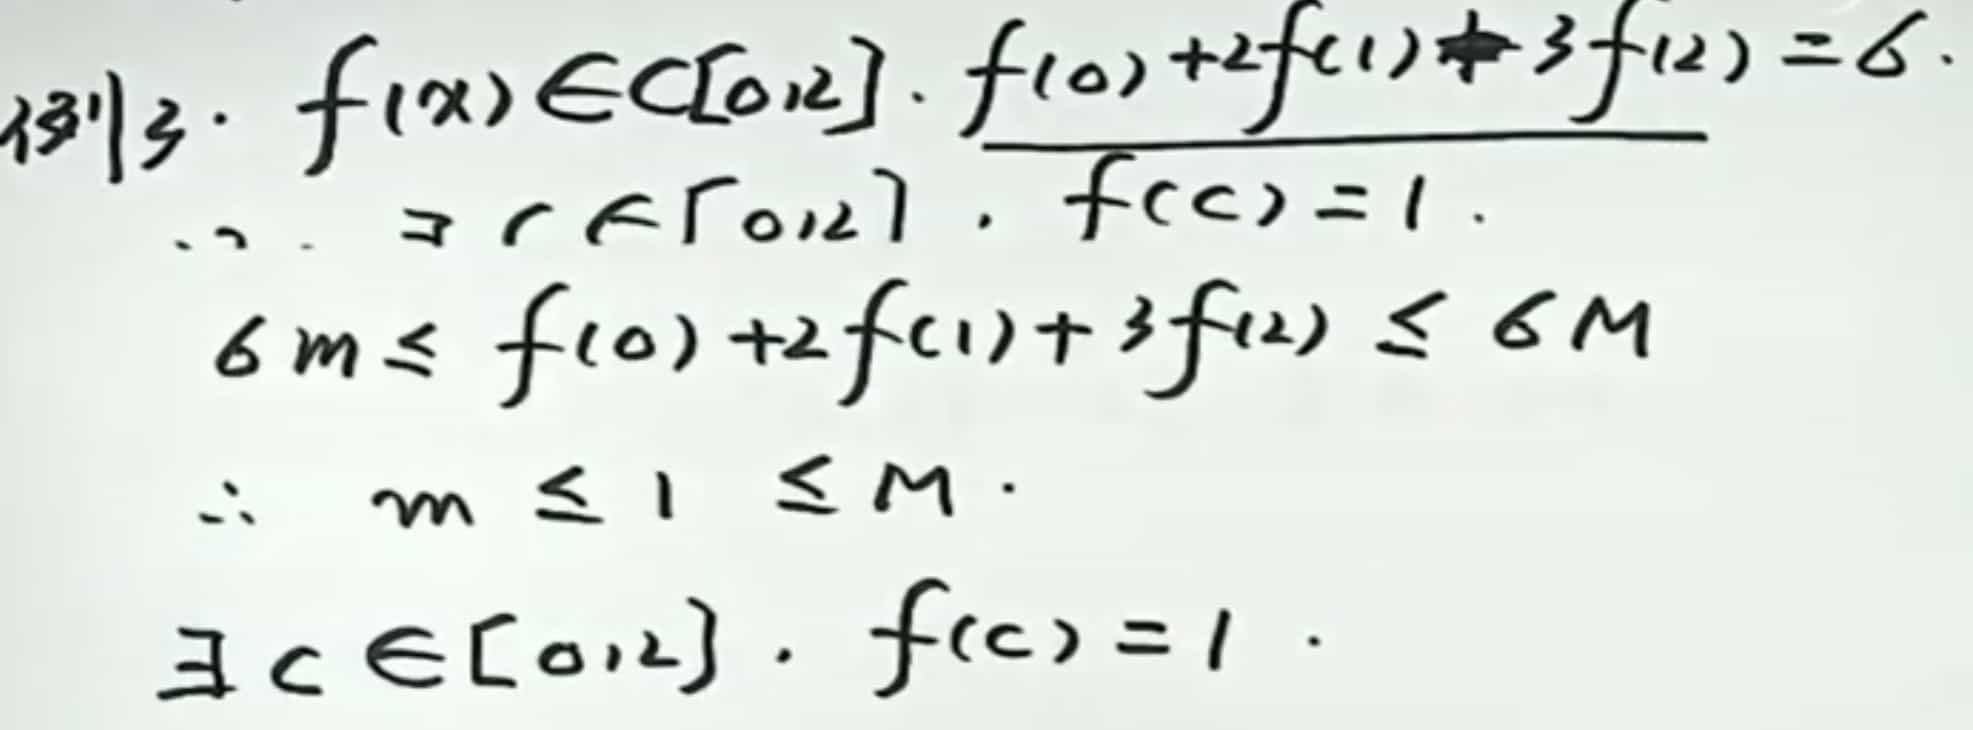 例3. f(x)∈C[0,2]. f(0)+2f(1)+3f(2)=6.
∃c∈[0,2]. f(c)=1.
6m≤f(0)+2f(1)+3f(2)≤6M
∴ m≤1≤M.
∃c∈[0,2]. f(c)=1.